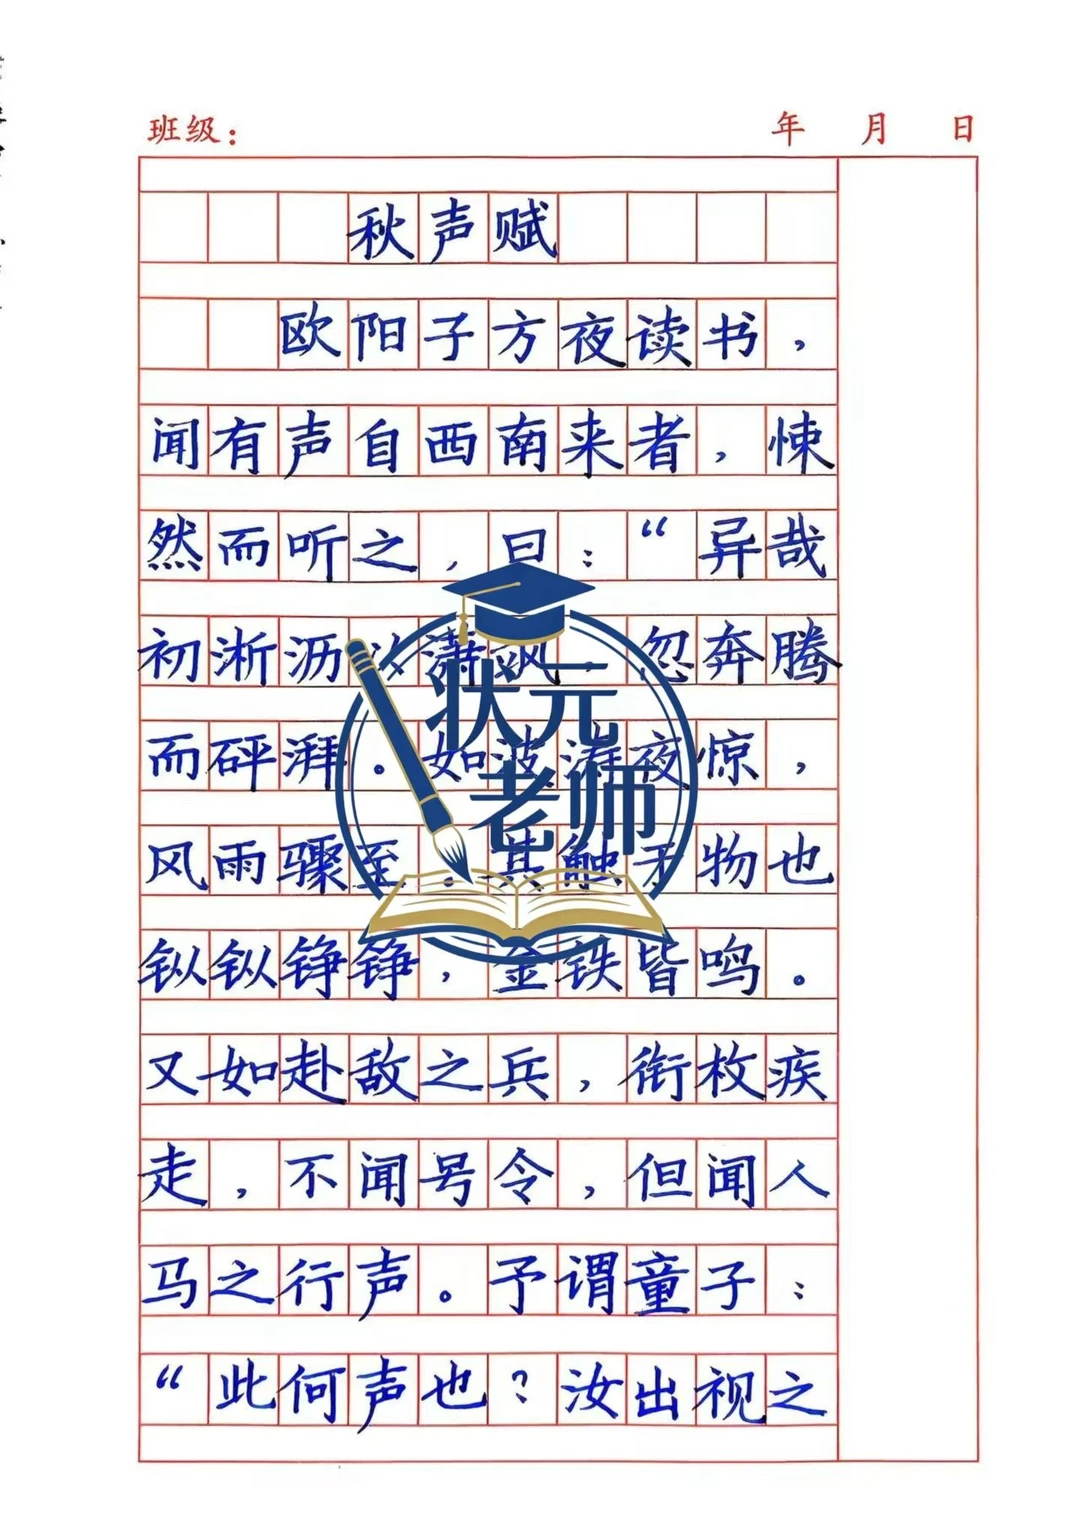 班级： 年 月 日
秋声赋
欧阳子方夜读书，
闻有声自西南来者，悚
然而听之，曰：“异哉
初淅沥以潇飒，忽奔腾
而砰湃。如波涛夜惊，
风雨骤至。其触于物也
鈠鈠铮铮，金铁皆鸣。
又如赴敌之兵，衔枚疾
走，不闻号令，但闻人
马之行声。予谓童子：
“此何声也？汝出视之
状元
老师